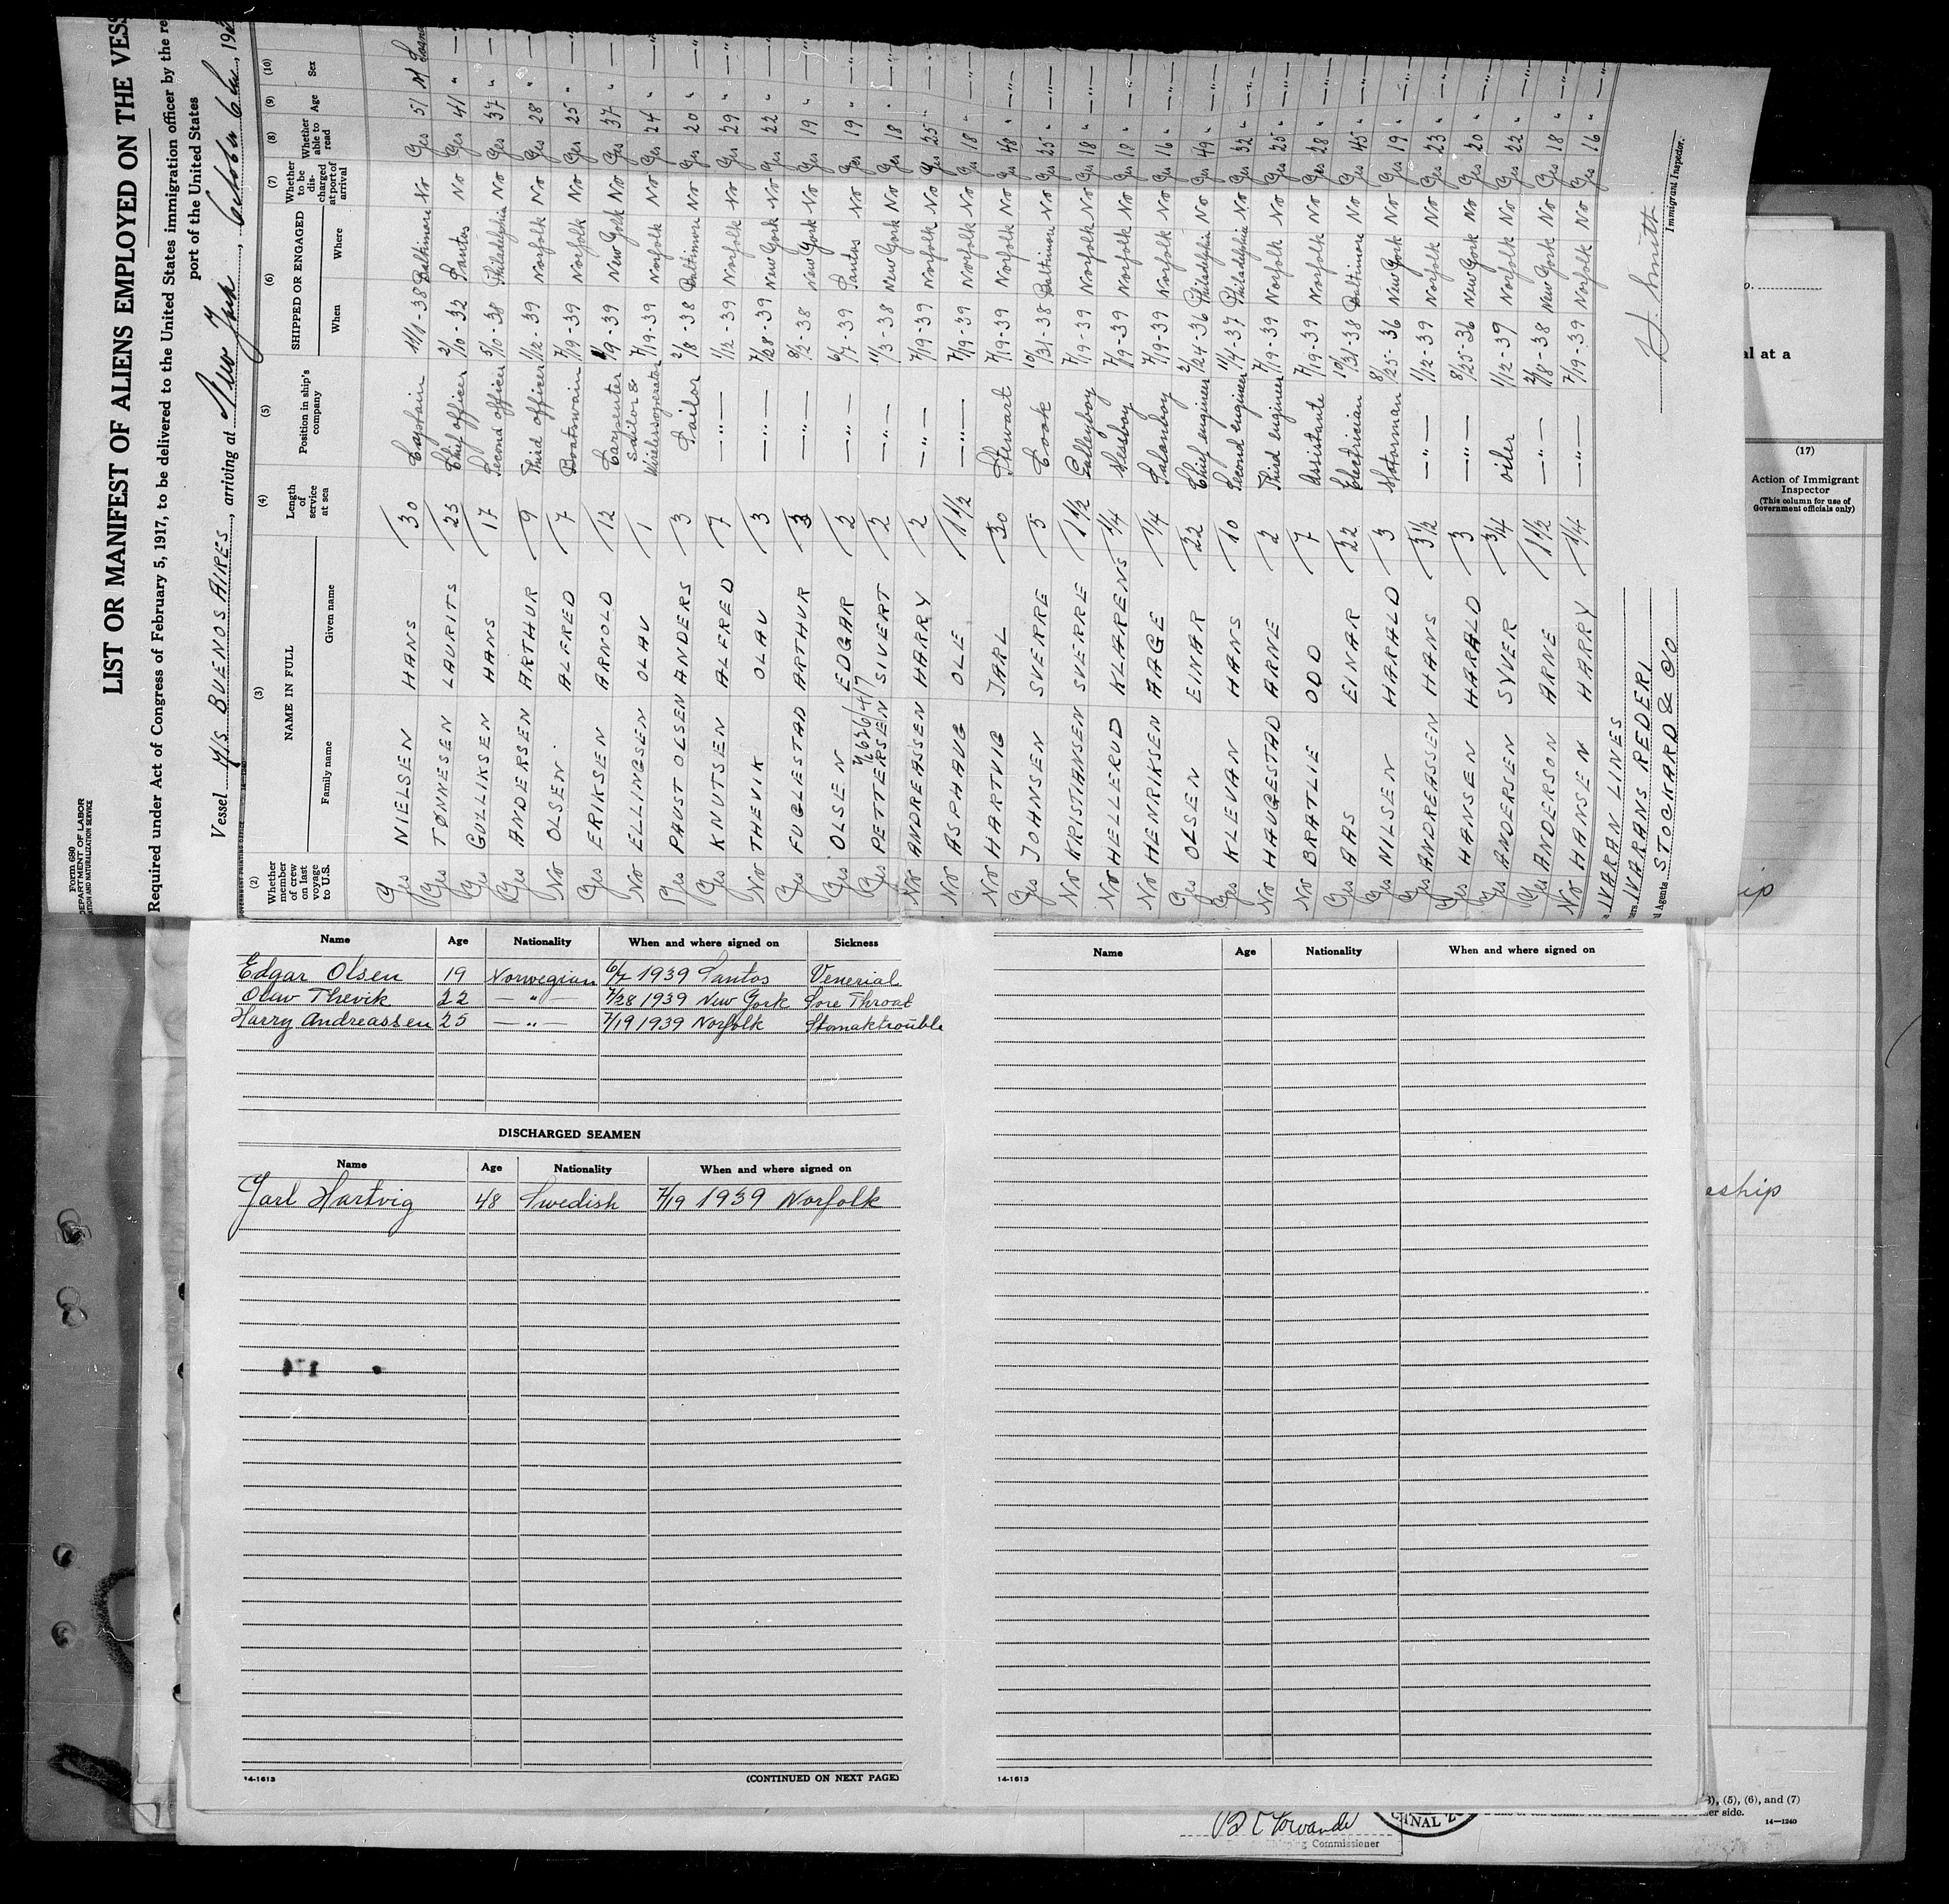 Form 680
DEPARTMENT OF LABOR
LIST OR MANIFEST OF ALIENS EMPLOYED ON THE VESS
Required under Act of Congress of February 5, 1917, to be delivered to the United States immigration officer by the re
port of the United States
Vessel M/S BUENOS AIRES, arriving at New York, October 6th, 193
(2) (3) (4) (5) (6) (7) (8) (9) (10)
Whether member of crew on last voyage to U.S. NAME IN FULL Family name Given name Length of service at sea Position in ship's company SHIPPED OR ENGAGED When Where Whether to be discharged at port of arrival Whether able to read Age Sex
Yes NIELSEN HANS 30 Captain 11/1-38 Baltimore No Yes 51 M
Yes TØNNESEN LAURITS 25 Chief officer 2/10-32 Santos No Yes 41 "
Yes GULLIKSEN HANS 17 Second officer 5/10-38 Philadelphia No Yes 37 "
Yes ANDERSEN ARTHUR 9 Third officer 1/12-39 Norfolk No Yes 28 "
No OLSEN ALFRED 7 Boatswain 7/19-39 Norfolk No Yes 25 "
Yes ERIKSEN ARNOLD 12 Carpenter 1/9-39 New York No Yes 37 "
No ELLINGSEN OLAV 1 Sailor & Wirelessoperator 7/19-39 Norfolk No Yes 24 "
Yes PAUST OLSEN ANDERS 3 Sailor 2/8-38 Baltimore No Yes 20 "
Yes KNUTSEN ALFRED 7 —"— 1/12-39 Norfolk No Yes 29 "
No THEVIK OLAV 3 —"— 7/28-39 New York No Yes 22 "
Yes FUGLESTAD ARTHUR 3 —"— 8/2-38 New York No Yes 19 "
Yes OLSEN EDGAR 2 —"— 6/7-39 Santos No Yes 19 "
Yes PETTERSEN SIVERT 2 —"— 11/3-38 New York No Yes 18 "
No ANDREASSEN HARRY 2 —"— 7/19-39 Norfolk No Yes 25 "
No ASPHAUG OLE 1 1/2 —"— 7/19-39 Norfolk No Yes 18 "
No HARTVIG JARL 30 Stewart 7/19-39 Norfolk No Yes 48 "
Yes JOHNSEN SVERRE 5 Cook 10/31-38 Baltimore No Yes 25 "
No KRISTIANSEN SVERRE 1 1/2 Galleyboy 7/19-39 Norfolk No Yes 18 "
No HELLERUD KLARENS 1/4 Messboy 7/19-39 Norfolk No Yes 18 "
No HENRIKSEN AAGE 1/4 Salonboy 7/19-39 Norfolk No Yes 16 "
Yes OLSEN EINAR 22 Chief engineer 2/24-36 Philadelphia No Yes 49 "
Yes KLEVAN HANS 10 Second engineer 11/4-37 Philadelphia No Yes 32 "
No HAUGESTAD ARNE 2 Third engineer 7/19-39 Norfolk No Yes 25 "
No BRATLIE ODD 7 Assistante 7/19-39 Norfolk No Yes 28 "
Yes AAS EINAR 22 Electrician 10/31-38 Baltimore No Yes 45 "
Yes NILSEN HARALD 3 Motorman 8/25-36 New York No Yes 19 "
Yes ANDREASSEN HANS 3 1/2 —"— 1/12-39 Norfolk No Yes 23 "
Yes HANSEN HARALD 3 —"— 8/25-36 New York No Yes 20 "
Yes ANDERSEN SYVER 3/4 oiler 1/12-39 Norfolk No Yes 22 "
Yes ANDERSON ARNE 1 1/2 —"— 2/8-38 New York No Yes 18 "
No HANSEN HARRY 1/4 —"— 7/19-39 Norfolk No Yes 16 "
IVARAN LINES
IVARANS REDERI
Agents STOCKARD & CO
Smith
Immigrant Inspector.
al at a
(17)
Action of Immigrant Inspector
(This column for use of Government officials only)
Name Age Nationality When and where signed on Sickness
Edgar Olsen 19 Norwegian 6/7 1939 Santos Venerial
Olav Thevik 22 —"— 7/28 1939 New York Sore Throat
Harry Andreassen 25 —"— 7/19 1939 Norfolk Stomaktrouble
DISCHARGED SEAMEN
Name Age Nationality When and where signed on
Jarl Hartvig 48 Swedish 7/19 1939 Norfolk
14-1613 (CONTINUED ON NEXT PAGE)
Name Age Nationality When and where signed on
14-1613
ip
eship
(5), (6), and (7)
er side.
14—1240
Shipping Commissioner